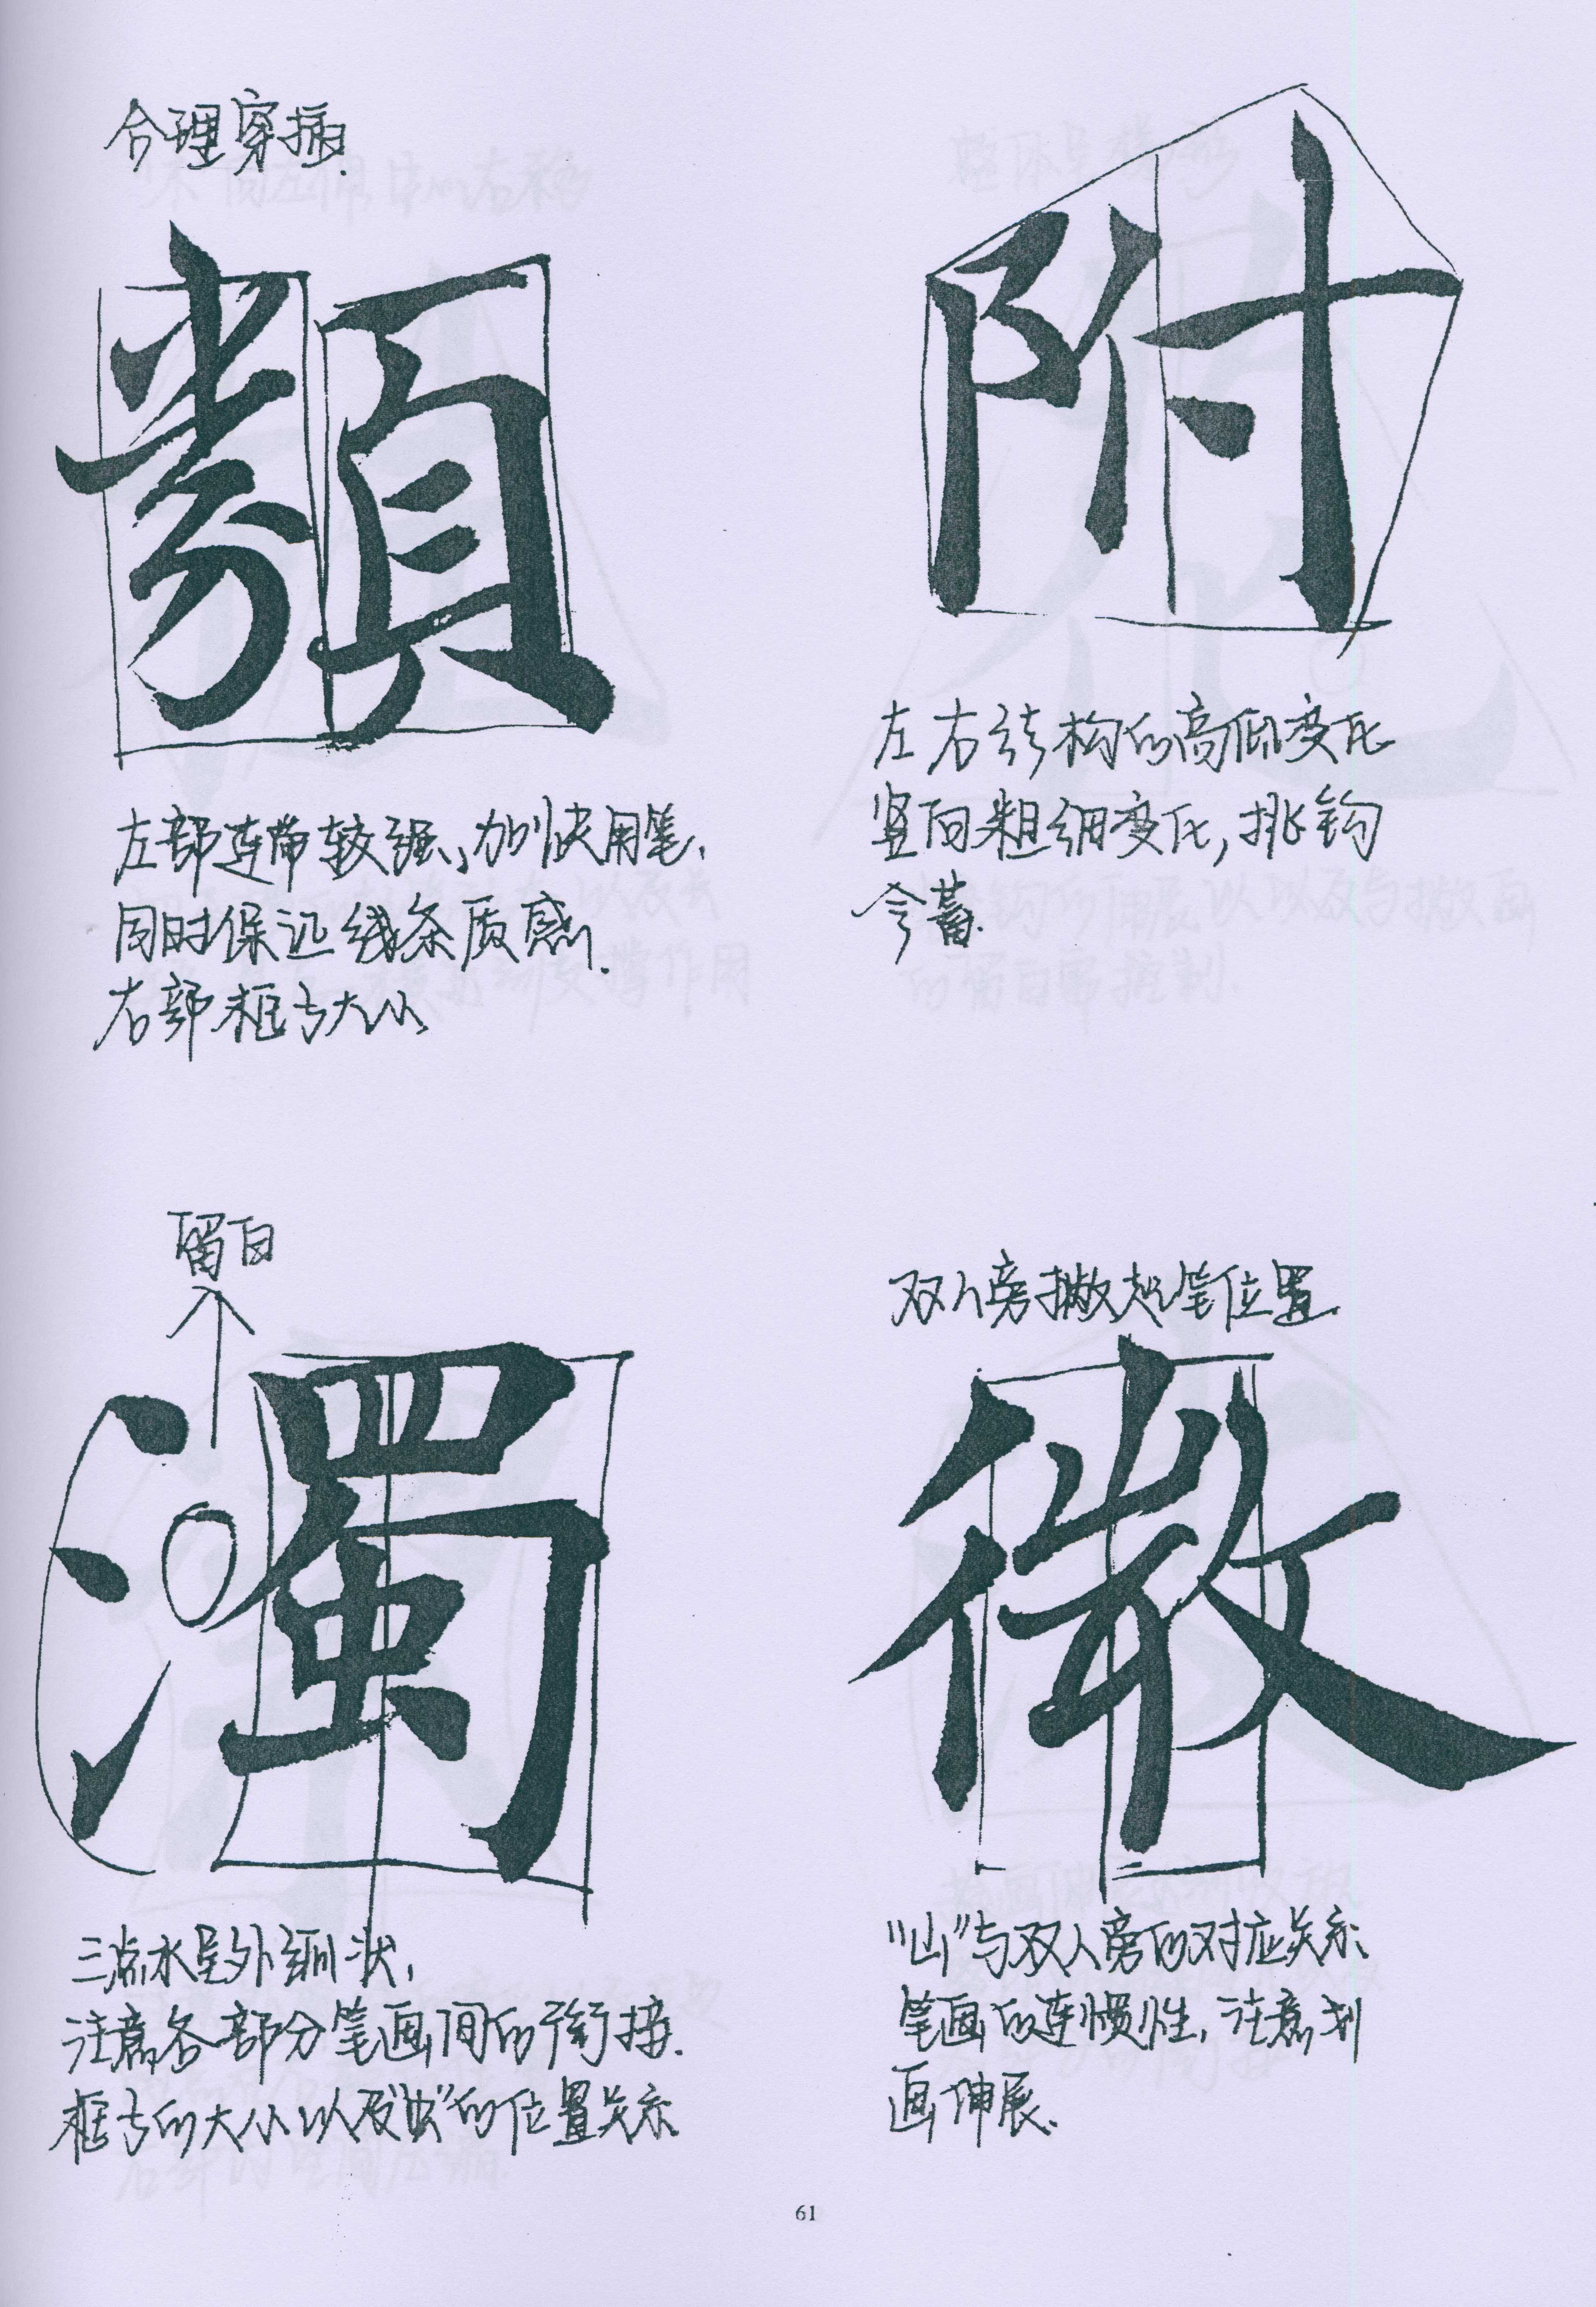 合理穿插.
類
左部连带较强,加快用笔,
同时保证线条质感.
右部框与大小
附
左右结构的高低变化
竖向粗细变化,挑钩
含蓄.
留白
濁
三点水呈外弧状,
注意各部分笔画间的衔接.
框与的大小以及“虫”的位置关系
双人旁撇起笔位置.
微
“山”与双人旁的对应关系、
笔画的连惯性,注意
画伸展.
61